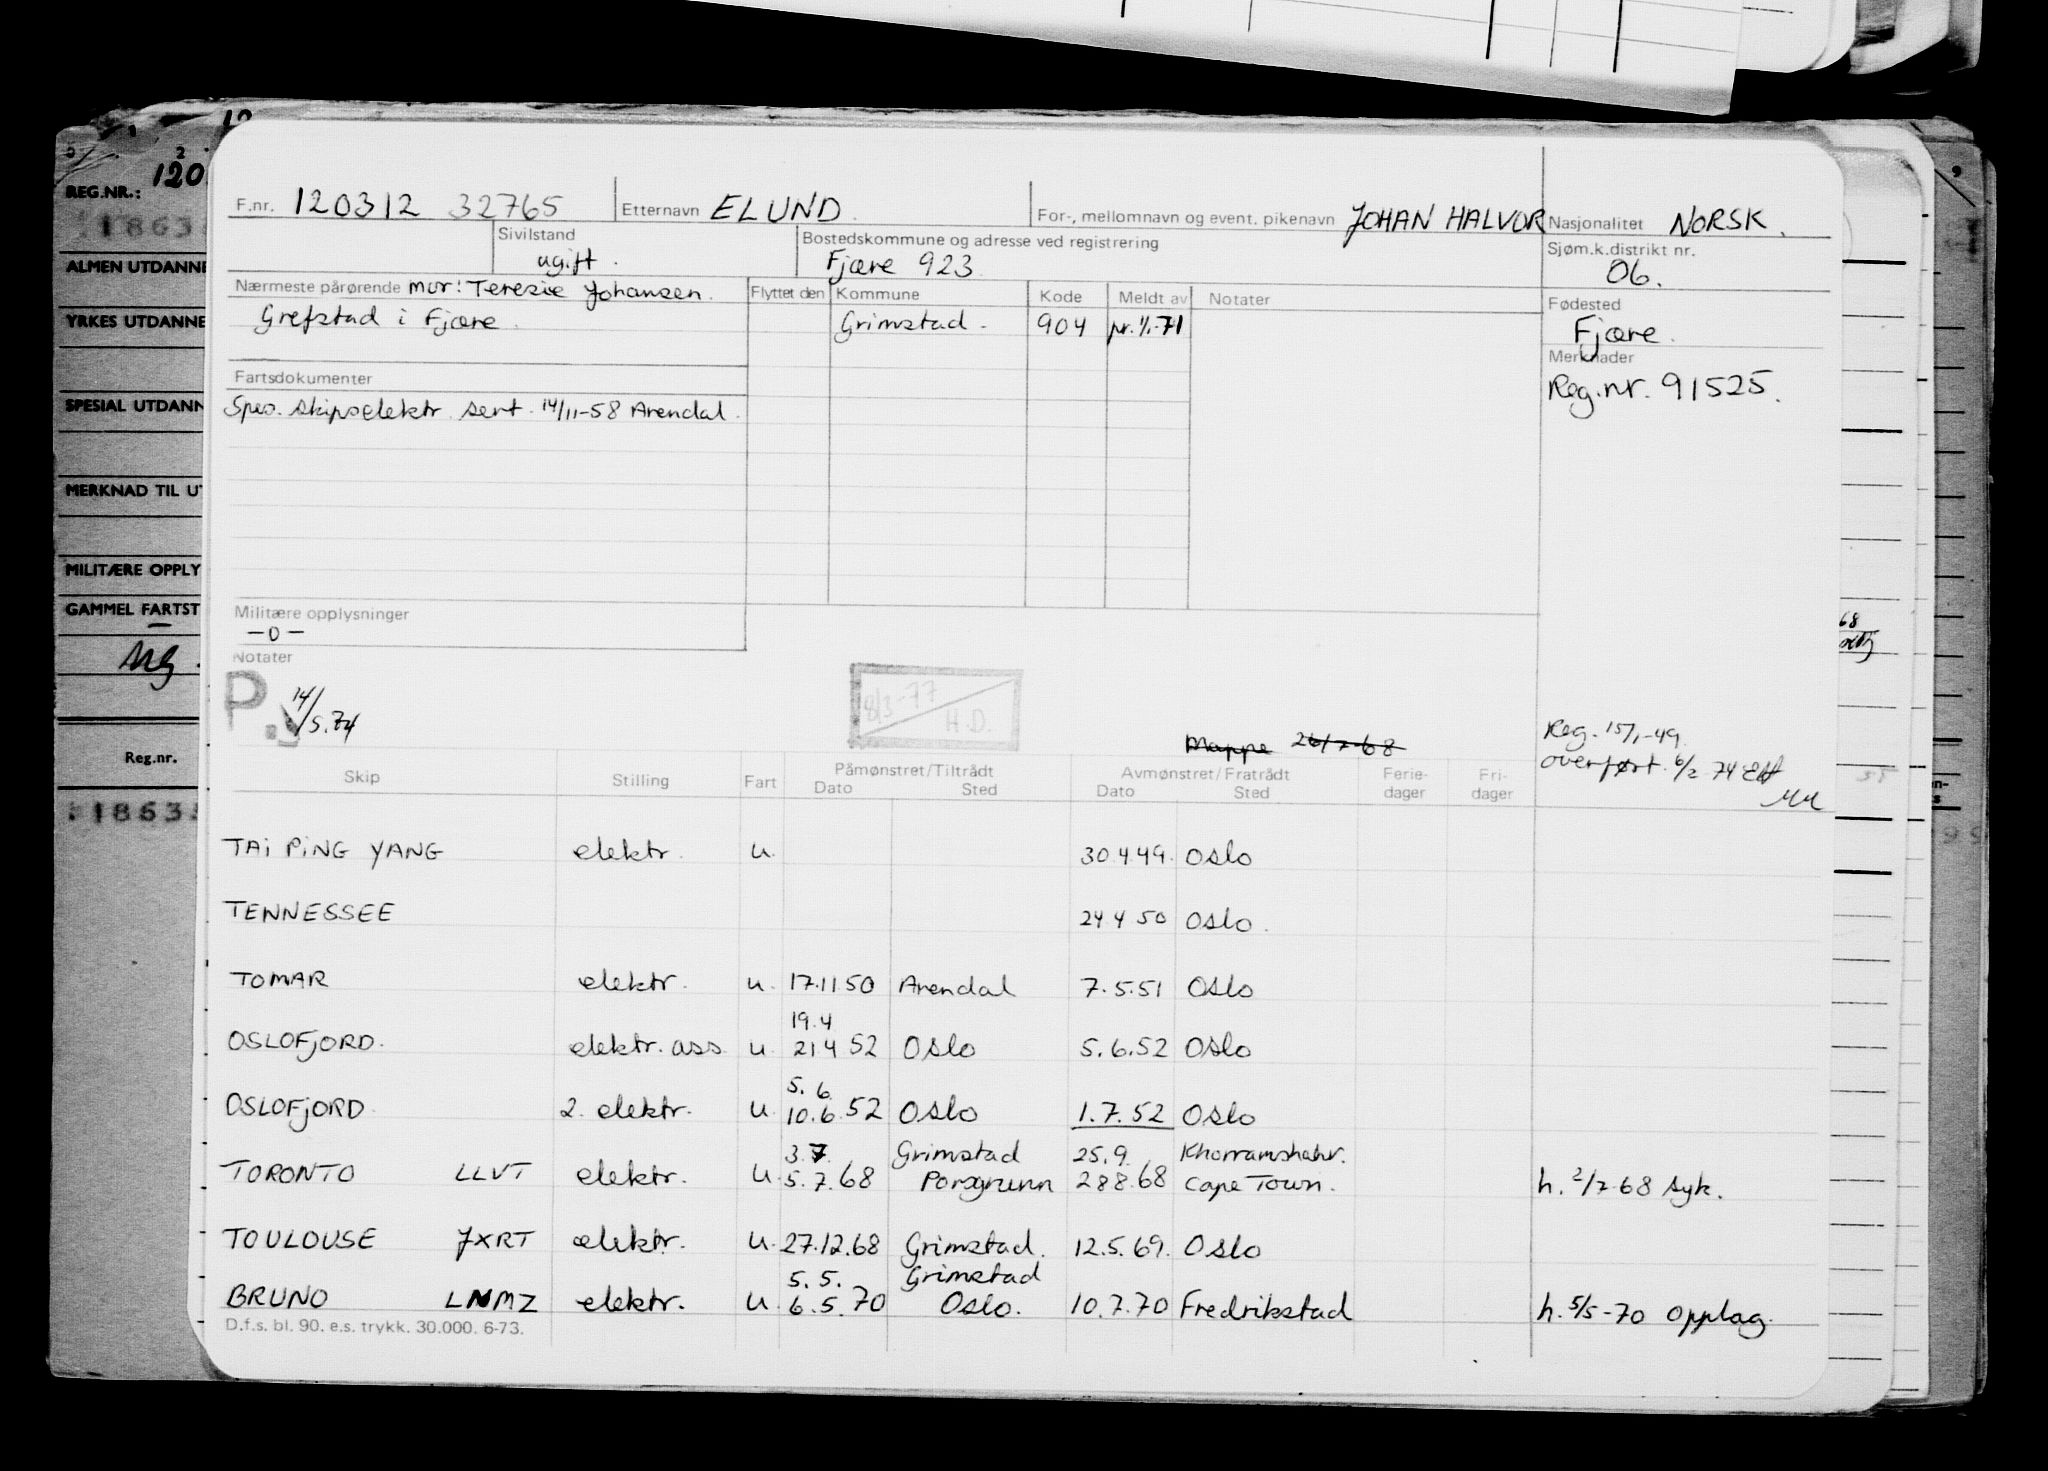 REG.NR.: 120
1863
ALMEN UTDANNE
YRKES UTDANNE
SPESIAL UTDANN
MERKNAD TIL UT
MILITÆRE OPPLY
GAMMEL FARTST
—
Reg.nr.
1863
F.nr. 120312 32765 Etternavn ELUND For-, mellomnavn og event. pikenavn JOHAN HALVOR Nasjonalitet NORSK.
Sivilstand ugift. Bostedskommune og adresse ved registrering Fjære 923 Sjøm.k.distrikt nr. 06.
Nærmeste pårørende mor: Teresie Johansen. Flyttet den Kommune Kode Meldt av Notater Fødested
Grefstad i Fjære. Grimstad - 904 pr. 1/1-71 Fjære.
Merknader
Fartsdokumenter Reg.nr. 91525.
Spes. skipselektr. sert. 14/11-58 Arendal.
Militære opplysninger
-0-
Notater
P. 14/5.74
8/3-77 H.D.
Mappe 26/7-68
Reg. 15/1-49
overført. 6/2 74
Skip Stilling Fart Påmønstret/Tiltrådt Dato Sted Avmønstret/Fratrådt Dato Sted Ferie-dager Fri-dager
TAI PING YANG elektr. u. 30.4.49. Oslo
TENNESSEE 24 4 50 Oslo.
TOMAR elektr. u. 17.11.50 Arendal 7.5.51 Oslo
19.4
OSLOFJORD. elektr. ass u. 21.4 52 Oslo 5.6.52 Oslo
5.6.
OSLOFJORD 2. elektr. u. 10.6.52 Oslo 1.7.52 Oslo
3.7. Grimstad 25.9. Khorramshahr.
TORONTO LLVT elektr. u. 5.7.68 Porsgrunn 28.8.68 Cape Town. h. 2/7-68 syk.
TOULOUSE JXRT elektr. u. 27.12.68 Grimstad. 12.5.69. Oslo
5.5. Grimstad
BRUNO LNMZ elektr. u. 6.5.70 Oslo. 10.7.70 Fredrikstad h. 5/5-70 opplag.
D.f.s. bl. 90. e.s. trykk. 30.000. 6-73.